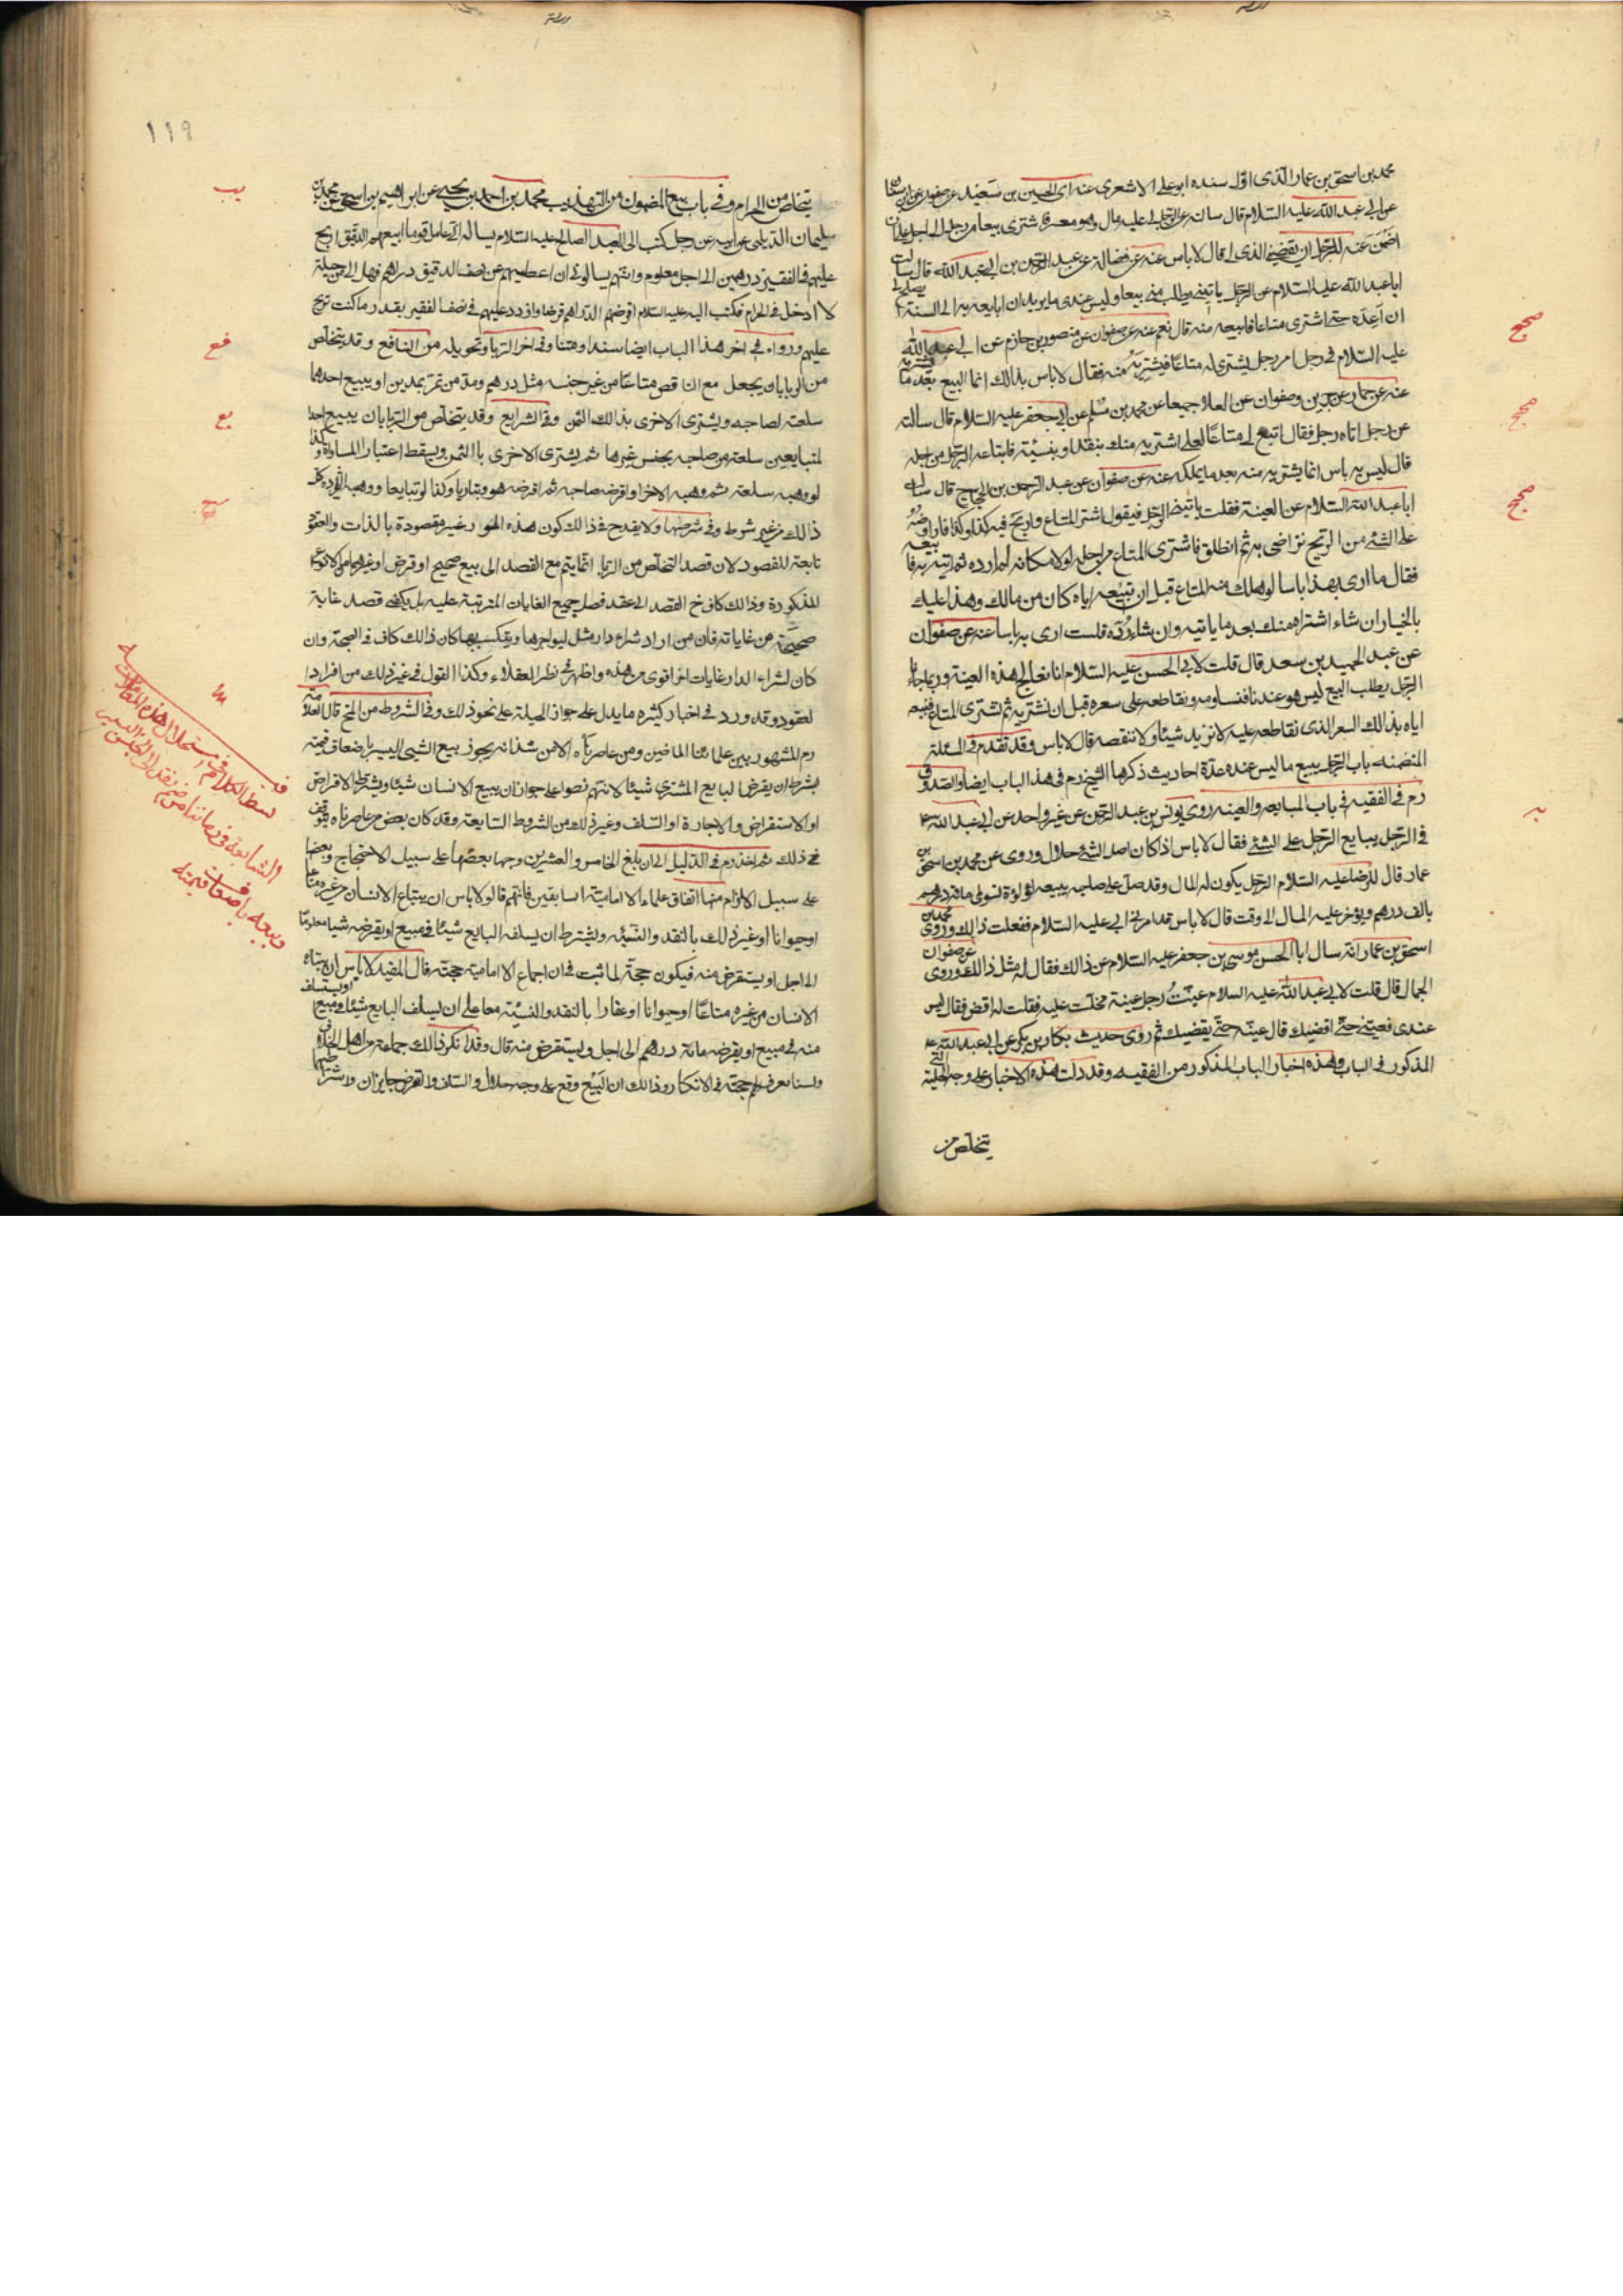 محمد بن اسحق بن عمار الذى اول سنده ابو على الاشعرى عنه اى الحسين بن سعيد عن صفوان عن ابن سنان
عن ابى عبد الله عليه السلام قال سالته عن الرجل لى عليه مال وهو معسر فاشترى بيعا من رجل الى اجل على ان
اضمن عنه للرجل ان يقضينى الذى لى قال لا باس عنه عن فضالة عن عبد الرحمن بن ابى عبد الله قال سالت
ابا عبد الله عليه السلام عن الرجل ياتينى يطلب منى بيعا وليس عندى ما يريد ان ابايعه به الى السنة ايصلح لى
ان اعده حتى اشترى متاعا فابيعه منه قال نعم عنه عن صفوان عن منصور بن حازم عن ابى عبد الله
عليه السلام فى رجل امر رجل يشترى له متاعا فيشتريه منه فقال لا باس بذالك انما البيع بعد ما يشتريه
عنه عن حماد عن حريز وصفوان عن العلا جميعا عن محمد بن مسلم عن ابى جعفر عليه السلام قال سالته
عن رجل اتاه رجل فقال ابتع لى متاعا لعلى اشتريه منك بنقد او بنسيئة فابتاعه الرجل من اجله
قال ليس به باس انما يشتريه منه بعد ما يملكه عنه عن صفوان عن عبد الرحمن بن الحجاج قال سالت
ابا عبد الله السلام عن العينة فقلت ياتينى الرجل فيقول اشتر المتاع واربح فيه كذا وكذا فاراوضه
على الشئ من الربح نتراضى به ثم انطلق فاشترى المتاع من اجله لولا مكانه لم ارده ثم اتيته به فابيعه
فقال ما ارى بهذا باسا لو هلك منه المتاع قبل ان تبيعه اياه كان من مالك وهذا عليك
بالخيار ان شاء اشتراه منك بعد ما ياتيه وان شاء رده فلست ارى به باسا عنه عن صفوان
عن عبد الحميد بن سعد قال قلت لابى الحسن عليه السلام انا نعالج هذه العينة وربما جاءنا
الرجل يطلب البيع ليس هو عندنا فنساومه ونقاطعه على سعره قبل ان نشتريه ثم نشترى المتاع فنبيعه
اياه بذلك السعر الذى نقاطعه عليه لا نزيد شيئا ولا ننقصه قال لا باس وقد تقدم فى المسئلة
المتضمنة باب الرجل يبيع ما ليس عنده عدة احاديث ذكرها الشيخ رم فى هذا الباب ايضا والصدوق
رم فى الفقيه فى باب المبايعه والعينه روى يونس بن عبد الرحمن عن غير واحد عن ابى عبد الله ع
فى الرجل يبايع الرجل على الشئ فقال لا باس اذا كان اصل الشئ حلال وروى عن محمد بن اسحق بن
عمار قال للرضا عليه السلام الرجل يكون له المال وقد حل على صاحبه يبيعه لؤلؤة تسوى مائة درهم
بالف درهم ويؤخر عليه المال الى وقت قال لا باس قد امرنى ابى عليه السلام ففعلت ذالك وروى محمد بن
اسحق بن عمار انه سال ابا الحسن موسى بن جعفر عليه السلام عن ذالك فقال له مثل ذالك وروى عن صفوان
الجمال قال قلت لابى عبد الله عليه السلام عينت رجل عينة فحلت عليه فقلت له اقض فقال ليس
عندى فعينى حتى اقضيك قال عينه حتى يقضيك ثم روى حديث بكار بن ابى بكر عن ابى عبد الله ع
المذكور فى الباب وهذه اخبار الباب المذكور من الفقيه وقد دلت هذه الاخبار على وجه الحيلة التى
يتخلص من
صحيح
صحيح
صحيح
١١٩
يتخلص من الحرام وفى باب بيع المضمون من التهذيب محمد بن احمد بن يحيى عن ابراهيم بن اسحق عن محمد بن
سليمان الديلمى عن ابيه عن رجل كتب الى العبد الصالح عليه السلام يساله انى اعامل قوما ابيعهم الدقيق اربح
عليهم فى القفيز درهمين الى اجل معلوم وانهم يسالونى ان اعطيهم عن نصف الدقيق دراهم فهل لى من حيلة
لا ادخل فى الحرام فكتب اليه عليه السلام اقرضهم الدراهم قرضا وازدد عليهم فى نصف القفيز بقدر ما كنت تربح
عليهم ورواه فى اخر هذا الباب ايضا سندا ومتنا وفى اخر الربا وتحويله من النافع وقد يتخلص
من الربا بان يجعل مع الناقص متاعا من غير جنسه مثل درهم ومد من تمر بمدين او يبيع احدهما
سلعته لصاحبه ويشترى الاخرى بذلك الثمن وفى الشرايع وقد يتخلص من الربا بان يبيع احد
المتبايعين سلعته من صاحبه بجنس غيرها ثم يشترى الاخرى بالثمن ويسقط اعتبار المساواة وكذا
لو وهبه سلعته ثم وهبه الاخر او اقرضه صاحبه ثم اقرضه هو وتباريا وكذا لو تبايعا ووهبه الزيادة كل
ذالك من غير شرط وفى شرحها ولا يقدح فى ذالك كون هذه الامور غير مقصودة بالذات والعقود
تابعة للقصود لان قصد التخلص من الربا انما يتم مع القصد الى بيع صحيح او قرض او غيرهما من الانواع
المذكورة وذالك كاف فى القصد الى عقد فصل جميع الغايات المترتبة عليه بل يكفى قصد غاية
صحيحة من غاياته فان من اراد شراء دار مثل ليوجرها ويتكسب بها كان ذالك كاف فى الصحة وان
كان لشراء الدار غايات اخر اقوى من هذه واظهر فى نظر العقلاء وكذا القول فى غير ذلك من افراد ا
لعقود وقد ورد فى اخبار كثيره ما يدل على جواز الحيلة على نحو ذلك وفى الشروط من المخ قال العلامة
رم المشهور بين علمائنا الماضين ومن عاصرناه الا من شذ انه يجوز بيع الشيى اليسير باضعاف قيمته
بشرط ان يقرض البايع المشترى شيئا لانهم نصوا على جواز ان يبيع الانسان شيئا ويشترط الاقراض
او الاستقراض والاجارة او السلف وغير ذلك من الشروط السايغه وقد كان بعض من عاصرناه يتوقف
فى ذلك ثم اخذ رم فى الدليل الى ان بلغ الخامس والعشرين وجها بعضها على سبيل الاحتجاج وبعضها
على سبيل الالزام منها اتفاق علماء الامامية السابقين فانهم قالو لا باس ان يبتاع الانسان من غيره متاعا
او حيوانا او غير ذلك بالنقد والنسيئه ويشترط ان يسلفه البايع شيئا فى مبيع او يقرضه شيا معلوما
الى اجل او يستقرض منه فيكون حجة لما ثبت فى ان اجماع الامامية حجة قال المفيد لا باس ان يبتاع
الانسان من غيره متاعا او حيوانا او عقارا بالنقد والنسيئة معا على ان يسلف البايع شيئا فى مبيع او يستسلف
منه فى مبيع او يقرضه مائة درهم الى اجل ويستقرض منه قال وقد انكر ذالك جماعة من اهل الخلاف
ولسنا نعرف لهم حجة فى الانكار وذالك ان البيع وقع على وجه حلال والسلف والقرض جايزان واشتراطهما
يب
فع
يع
ح